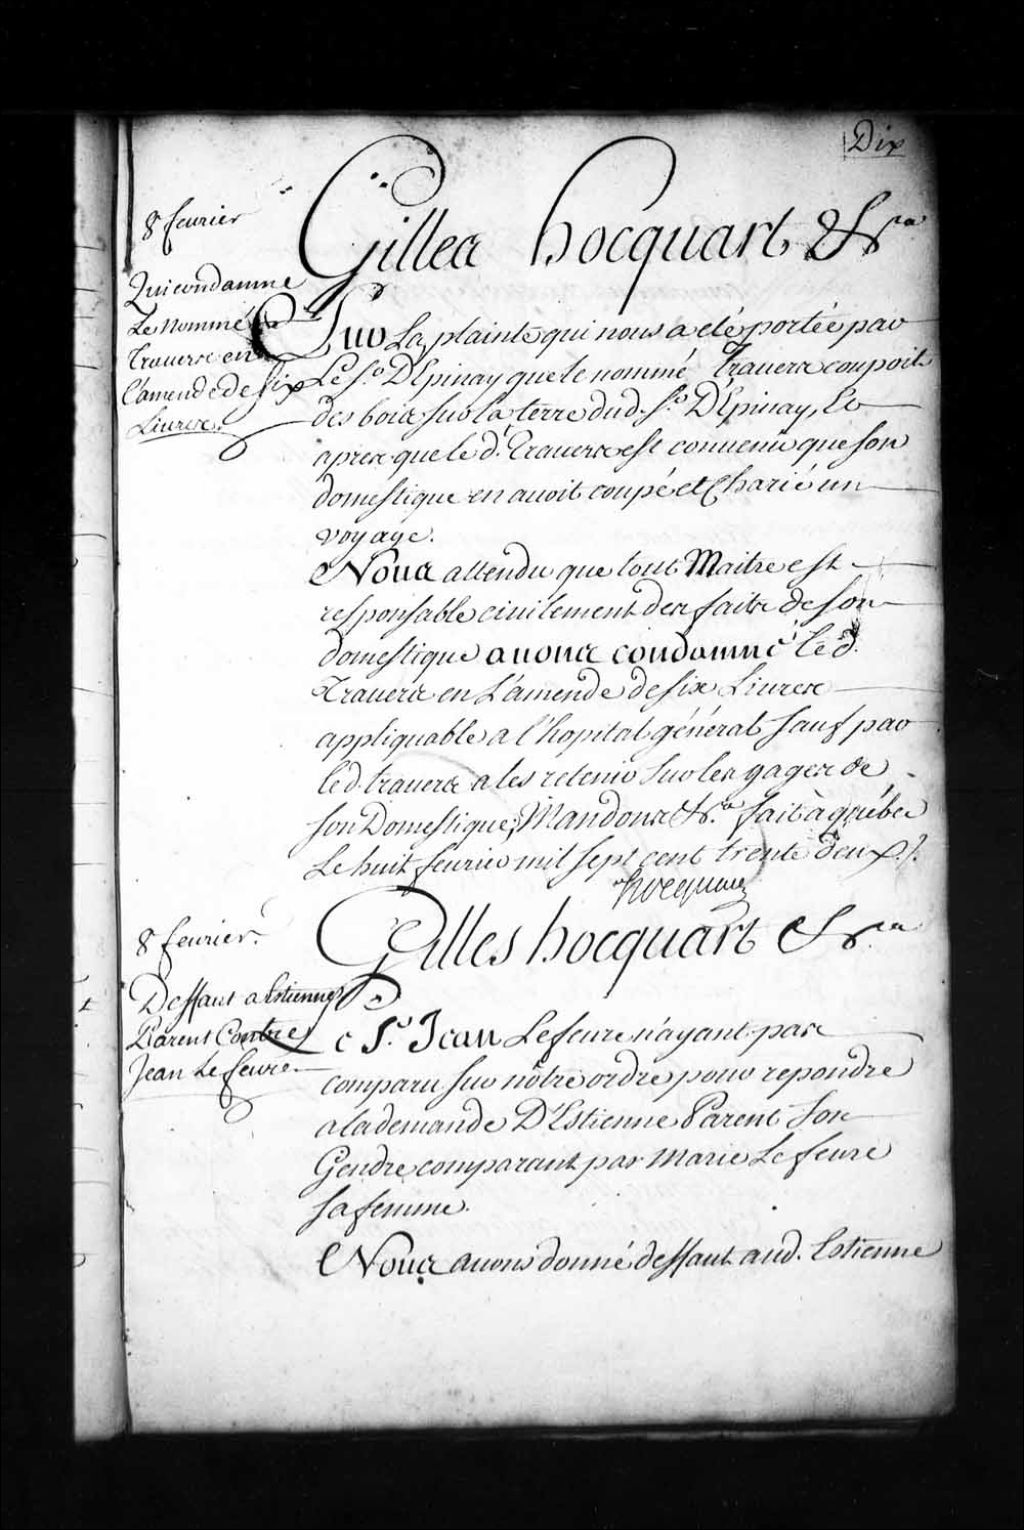 Dix
8 feurier
Gilles hocquart &ra
Qui condamne
Le nommé
Trauerse en
l'amende de six
Liures.
Sur La plainte qui nous a eté portée par
Le Sr. D'Epinay que le nommé Trauers coupoit
des bois sur la terre dud. Sr. D'Epinay, Et
apres que led. Trauers est conuenu que son
domestique en auoit coupé et Charié un
voyage.
Nous attendu que tout Maitre est
responsable ciuilement des faits de son
domestique auons condamné led.
Trauers en L'amende de six Liures
appliquable a l'hopital général sauf par
led. trauers a les retenir sur les gages de
son Domestique; Mandons &ra. fait à québec
Le huit feurier mil sept cent trente deux./.
hocquart
8 feurier.
Gilles hocquart &ra
Deffaut a Estienne
Parent Contre
Jean Le feure
Le Sr. Jean Lefeure n'ayant pas
comparu sur nôtre ordre pour repondre
a la demande D'Estienne Parent son
Gendre comparant par Marie Le feure
sa femme.
Nous auons donné deffaut aud. Estienne